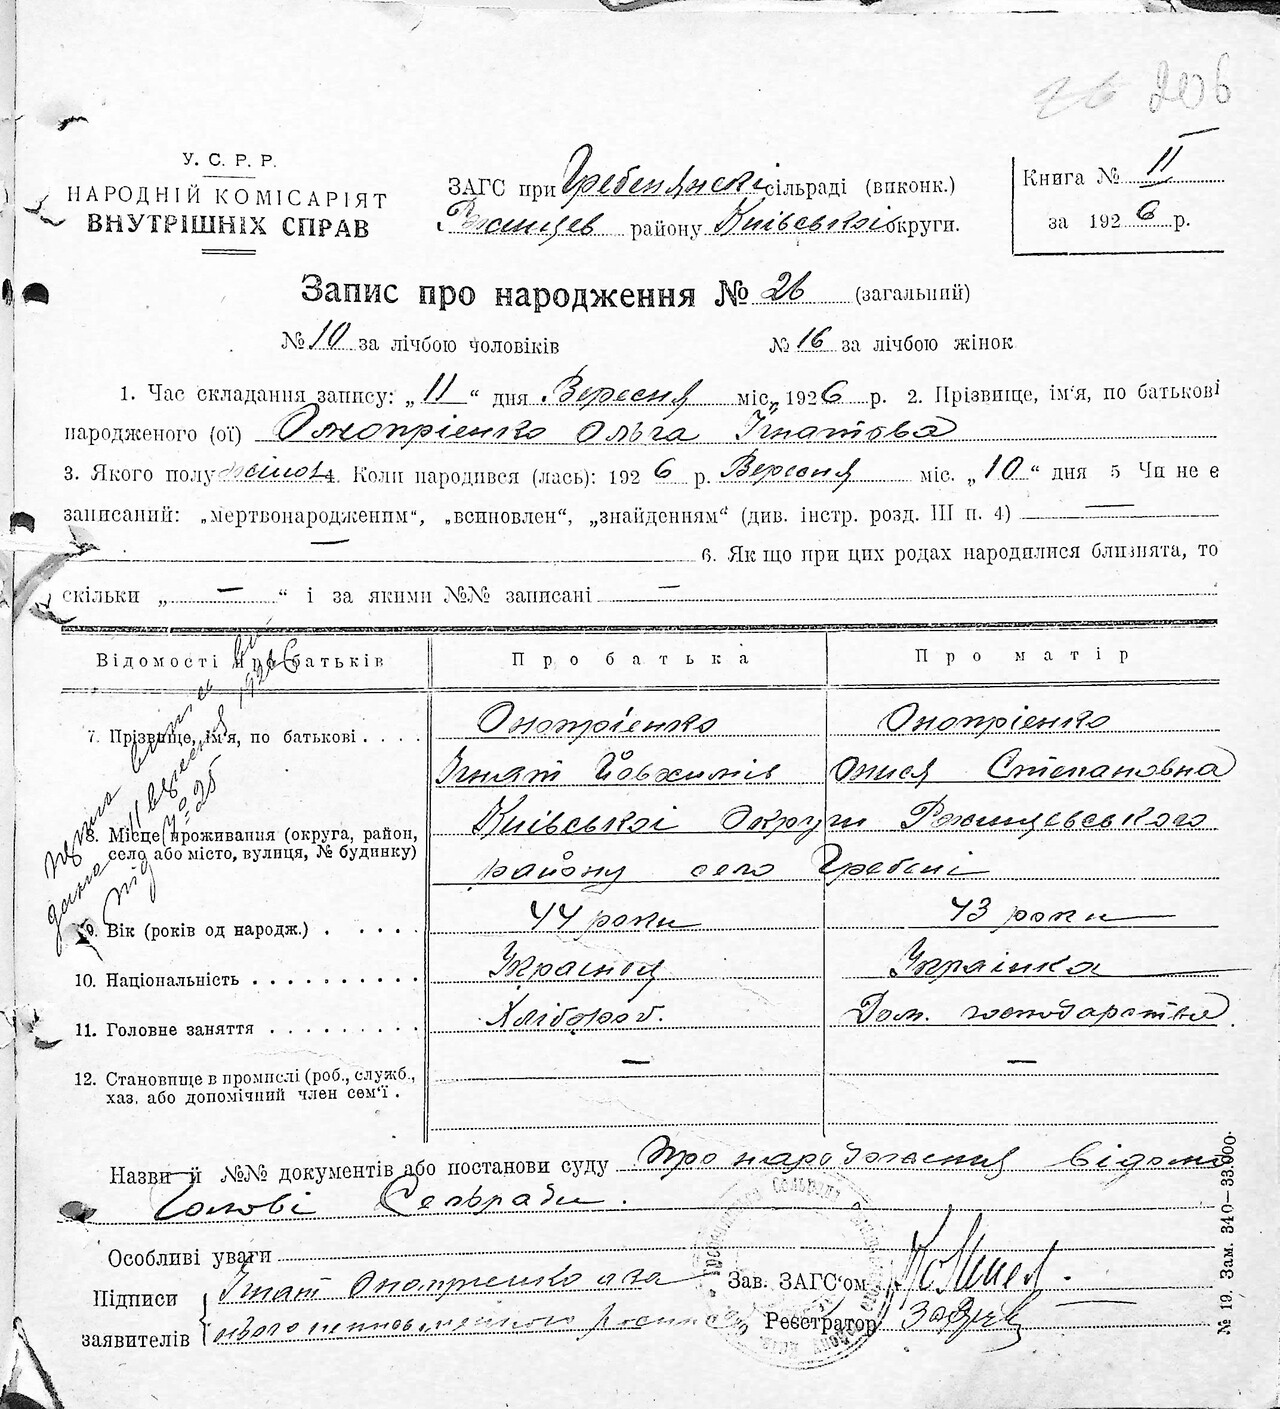 206
У. С. Р. Р.
НАРОДНІЙ КОМІСАРІЯТ
ВНУТРІШНІХ СПРАВ
ЗАГС при Гребенянскі сільраді (виконк.)
району Київської округи.
Книга № II
за 1926 р.
Запис про народження № 26 (загальний)
№ 10 за лічбою чоловіків № 16 за лічбою жінок
1. Час складання запису: „11“ дня Вересня міс. 1926 р. 2. Прізвище, ім'я, по батькові
народженого (ої) Онопрієнко Ольга Ігнатова
3. Якого полу жіноч. 4. Коли народився (лась): 1926 р. Вересня міс. „10“ дня 5 Чи не є
записаний: „мертвонародженим“, „всиновлен“, „знайденням“ (див. інстр. розд. III п. 4) —
— 6. Як що при цих родах народилися близнята, то
скільки „ — “ і за якими №№ записані —
Відомості про батьків Про батька Про матір
7. Прізвище, ім'я, по батькові . . . .
Онопрієнко Онопрієнко
Ігнат Йовхимів Онися Степановна
8. Місце проживання (округа, район,
село або місто, вулиця, № будинку)
Київської Округи
району село Гребені
9. Вік (років од народж.) . . . . . 44 роки 43 роки
10. Національність . . . . . . . . . . Українка
11. Головне заняття . . . . . . . . . Хлібороб. Дом. господарства.
12. Становище в промислі (роб., служб.,
хаз. або допомічний член сем'ї . — —
11 вересня 1926
під № 25
Назви й №№ документів або постанови суду Про народження відомо
Голові Сельради.
Особливі уваги
Підписи
заявителів
Ігнат Онопрієнко а за
Зав. ЗАГС'ом
Реєстратор
№ 19. Зам. 340—33.000.